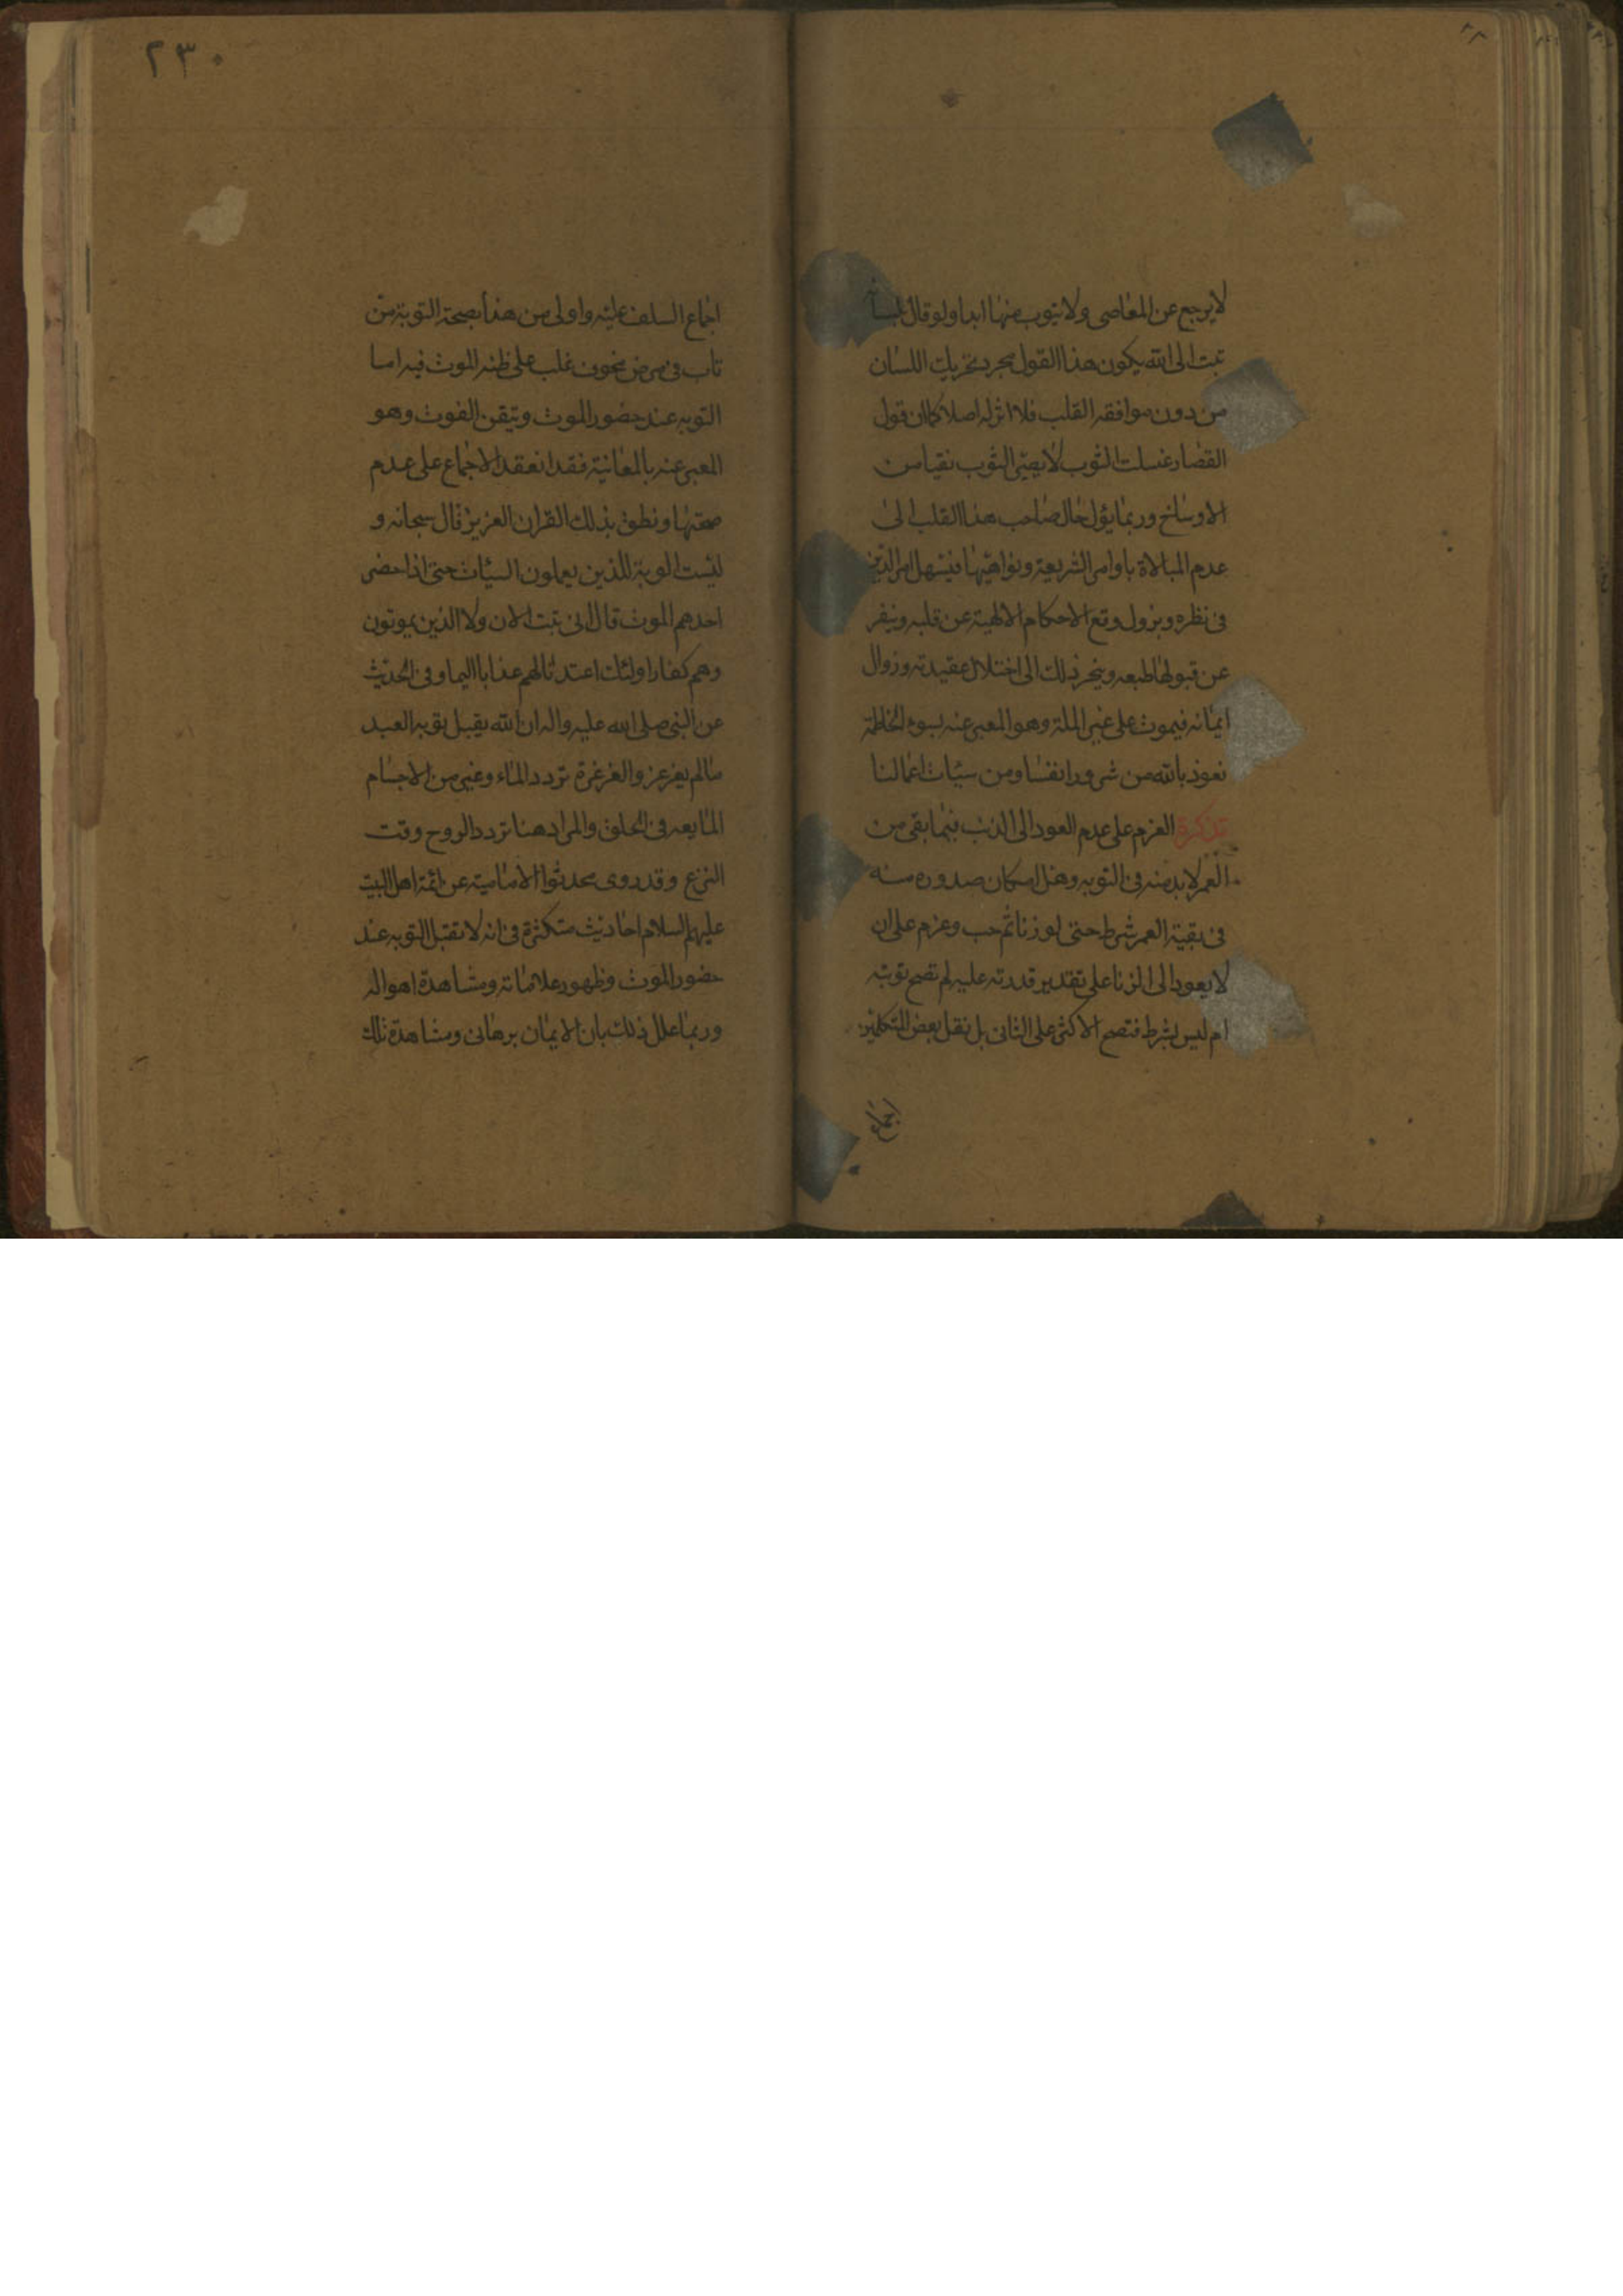 لا يرجع عن المعاصى ولا يتوب منها ابدا ولو قال بلسانه
تبت الى الله يكون هذا القول مجرد تحريك اللسان
من دون موافقه القلب فلا اثر له اصلا كما ان قول
القصار غسلت الثوب لا يصيّر الثوب نقيا من
الاوساخ وربما يؤل حال صاحب هذا القلب الى
عدم المبالاة باوامر الشريعة ونواهيها فيسهل امر الدين
فى نظره ويزول وقع الاحكام الالهية عن قلبه وينفر
عن قبولها طبعه وينجر ذلك الى اختلال عقيدته وزوال
ايمانه فيموت على غير الملة وهو المعبر عنه بسوء الخاتمة
نعوذ بالله من شرور انفسنا ومن سيئات اعمالنا
تذكرة العزم على عدم العود الى الذنب فيما بقى من
العمر لابد منه فى التوبه وهل امكان صدوره منه
فى بقية العمر شرط حتى لو زنا ثم جب وعزم على ان
لا يعود الى الزنا على تقدير قدرته عليه لم تصح توبته
ام ليس بشرط فتصح الاكثر على الثانى بل نقل بعض المتكلمين
اجماع
٢٣٠
اجماع السلف عليه واولى من هذا بصحة التوبة من
تاب فى مرض مخوف غلب على ظنه الموت فيه اما
التوبه عند حضور الموت وتيقن الفوت وهو
المعبر عنه بالمعاينة فقد انعقد الاجماع على عدم
صحتها ونطق بذلك القران العزيز قال سبحانه و
ليست الوبة للذين يعملون السيئات حتى اذا حضر
احدهم الموت قال انى تبت الان ولا الذين يموتون
وهم كفار اولئك اعتدنا لهم عذابا اليما وفى الحديث
عن النبى صلى الله عليه واله ان الله يقبل توبه العبد
مالم يغرغر والغرغرة تردد الماء وغيره من الاجسام
المايعه فى الحلق والمراد هنا تردد الروح وقت
النزع وقد روى محدثوا الامامية عن ائمة اهل البيت
عليهم السلام احاديث متكثرة فى انه لا تقبل التوبه عند
حضور الموت وظهور علاماته ومشاهدة اهواله
وربما علل ذلك بان الايمان برهانى ومشاهدة تلك